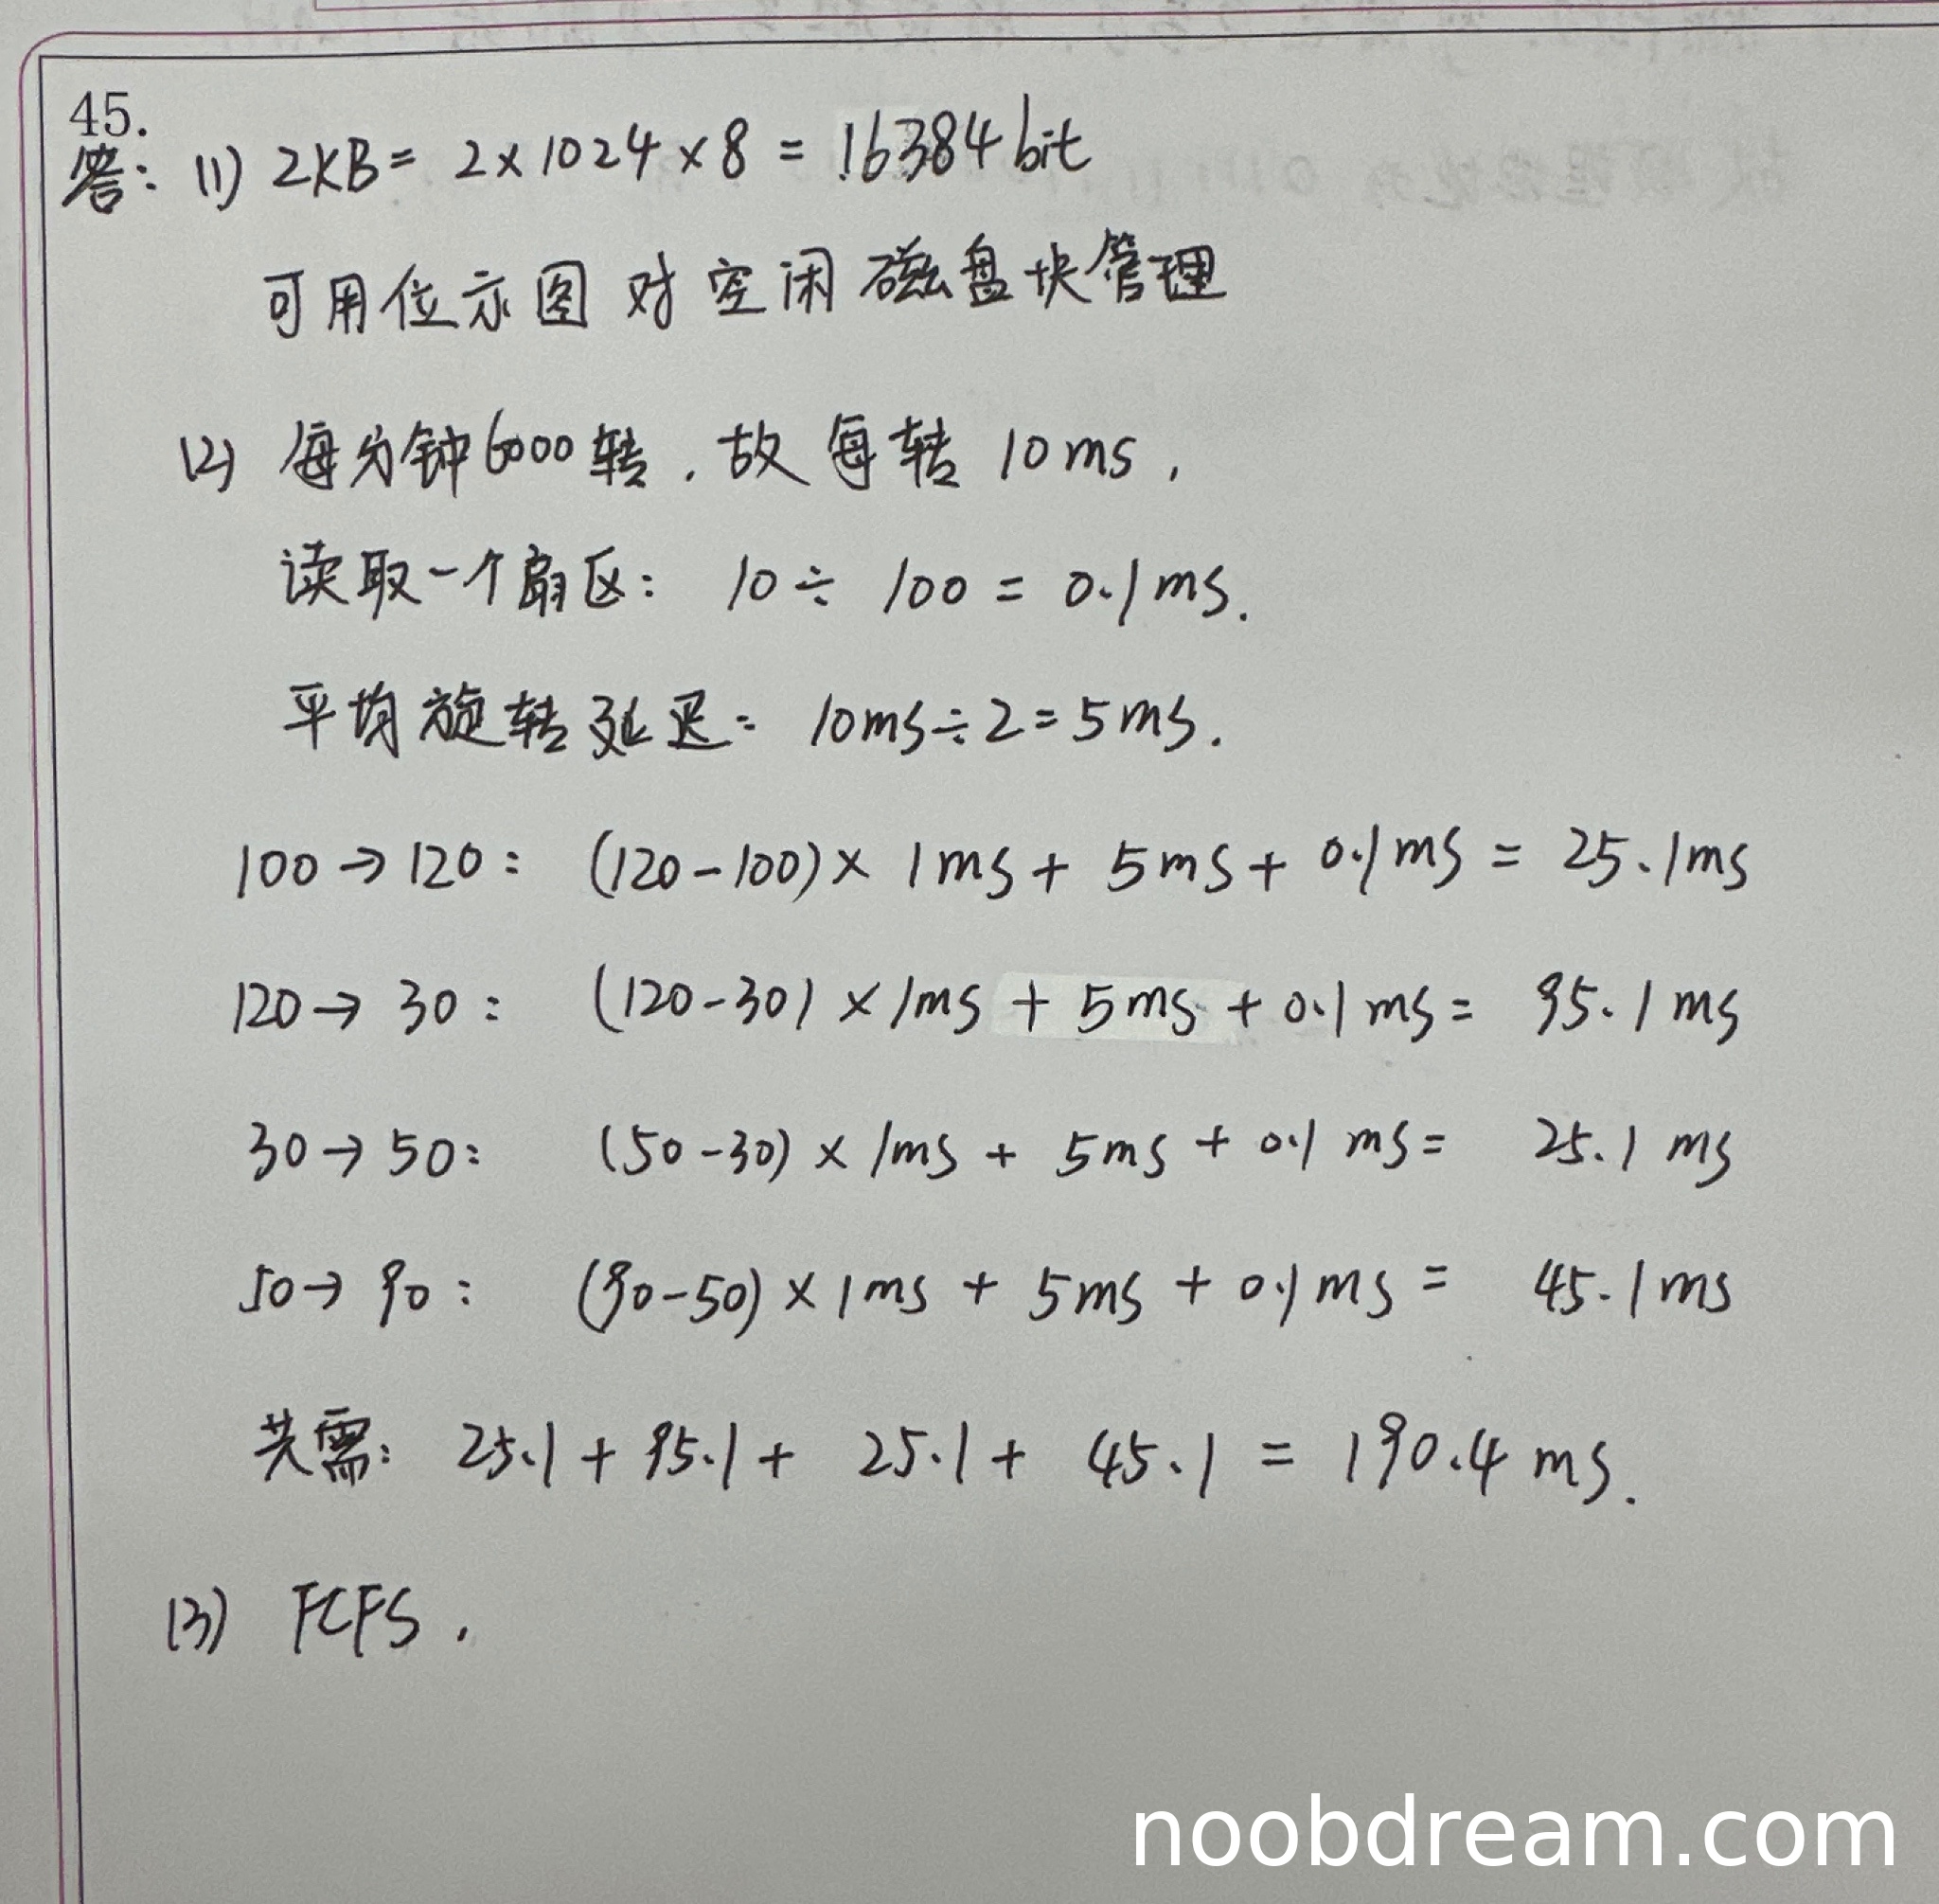 45.
答: (1) 2KB = 2×1024×8 = 16384 bit
可用位示图对空闲磁盘块管理
(2) 每分钟6000转,故每转10ms,
读取一个扇区: 10÷100=0.1ms.
平均旋转延迟: 10ms÷2=5ms.
100→120: (120-100)×1ms+5ms+0.1ms=25.1ms
120→30: (120-30)×1ms+5ms+0.1ms=95.1ms
30→50: (50-30)×1ms+5ms+0.1ms=25.1ms
50→90: (90-50)×1ms+5ms+0.1ms=45.1ms
共需: 25.1+95.1+25.1+45.1=190.4ms.
(3) FCFS,
noobdream.com